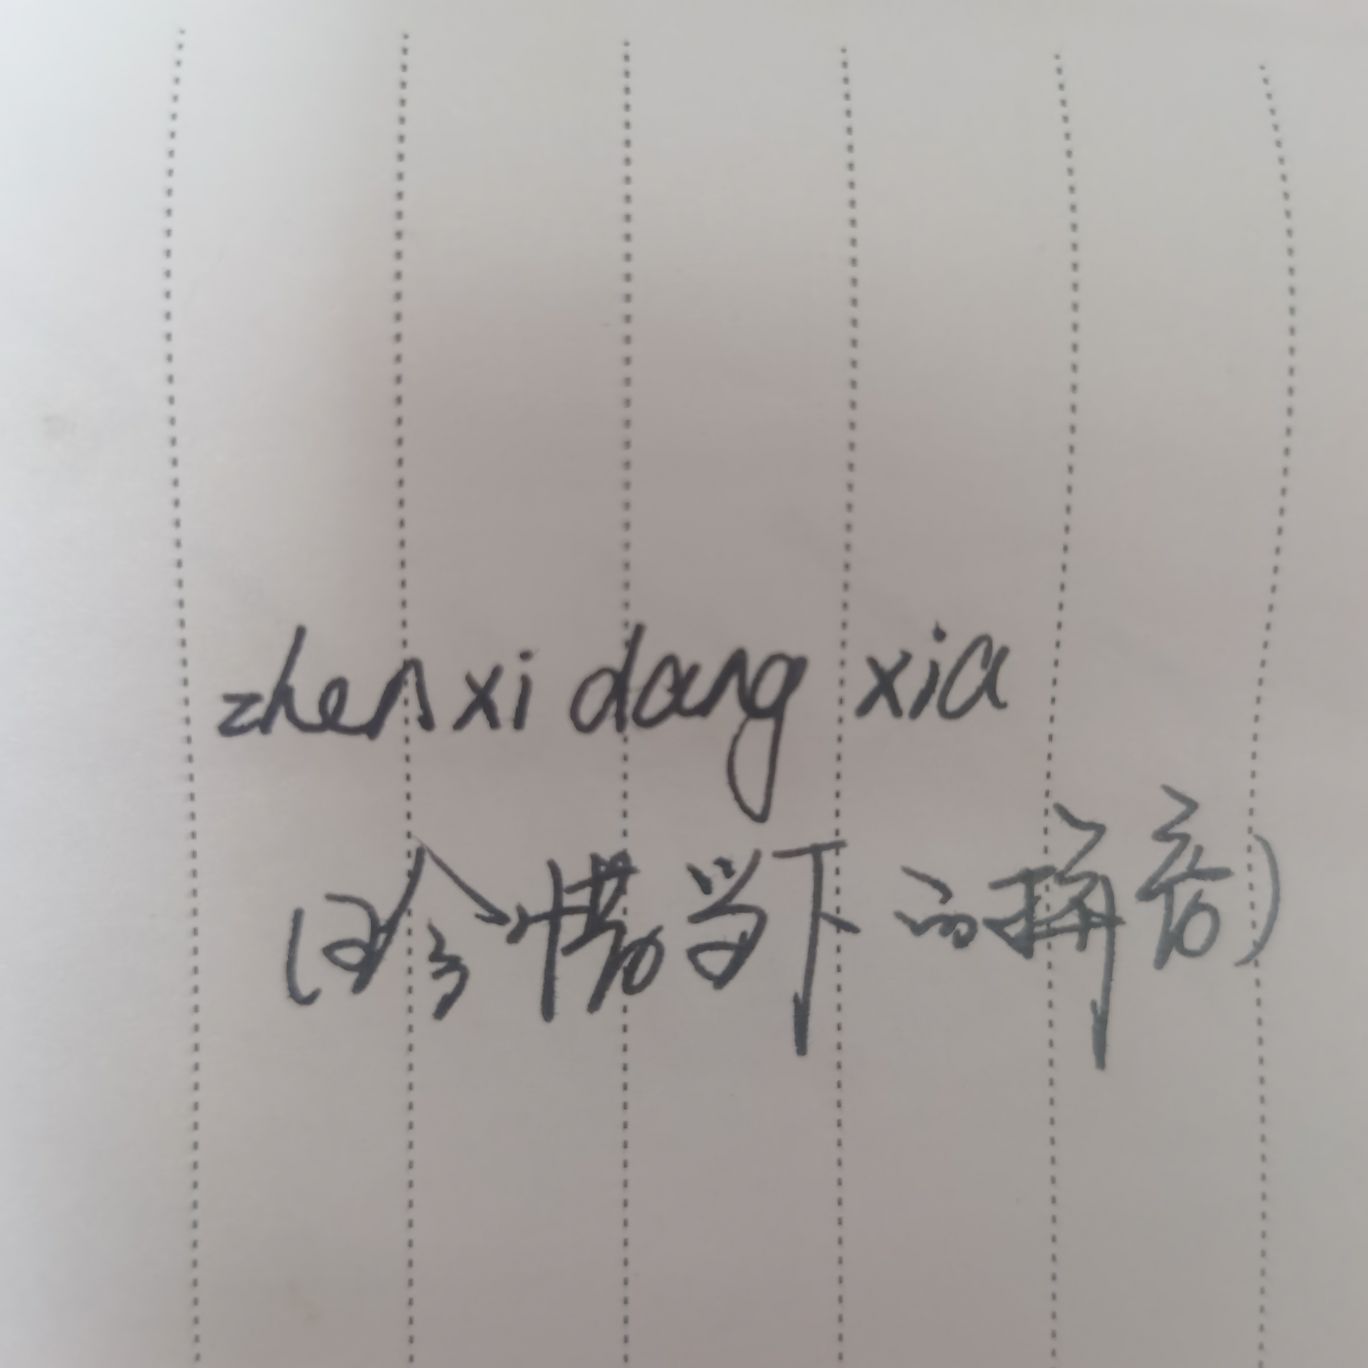 zhenxi dang xia
(珍惜当下的拼音)